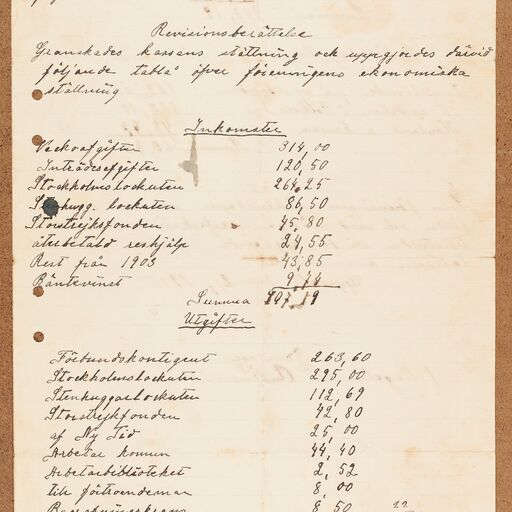 Revisionsberättelse
Granskades kassans ställning och uppgjordes därvid
följande tablå öfver föreningens ekonomiska
ställning
Inkomster
Veckoafgifter 314,00
Inträdesafgifter 120,50
Stockholmslockuten 264,25
Stenhugg. lockuten 86,50
Storstrejksfonden 45,80
återbetald reshjälp 24,55
Rest från 1903 43,85
Räntevinst 9,74
Summa 907,19
Utgifter
Förbundskontigent 263,60
Stockholmslockuten 295,00
Stenhuggarlockuten 112,69
Storstrejkfonden 42,80
af Ny Tid 25,00
Arbetar komun 44,40
Arbetarbiblioteket 2,52
till förtroendemän 8,00
8,50